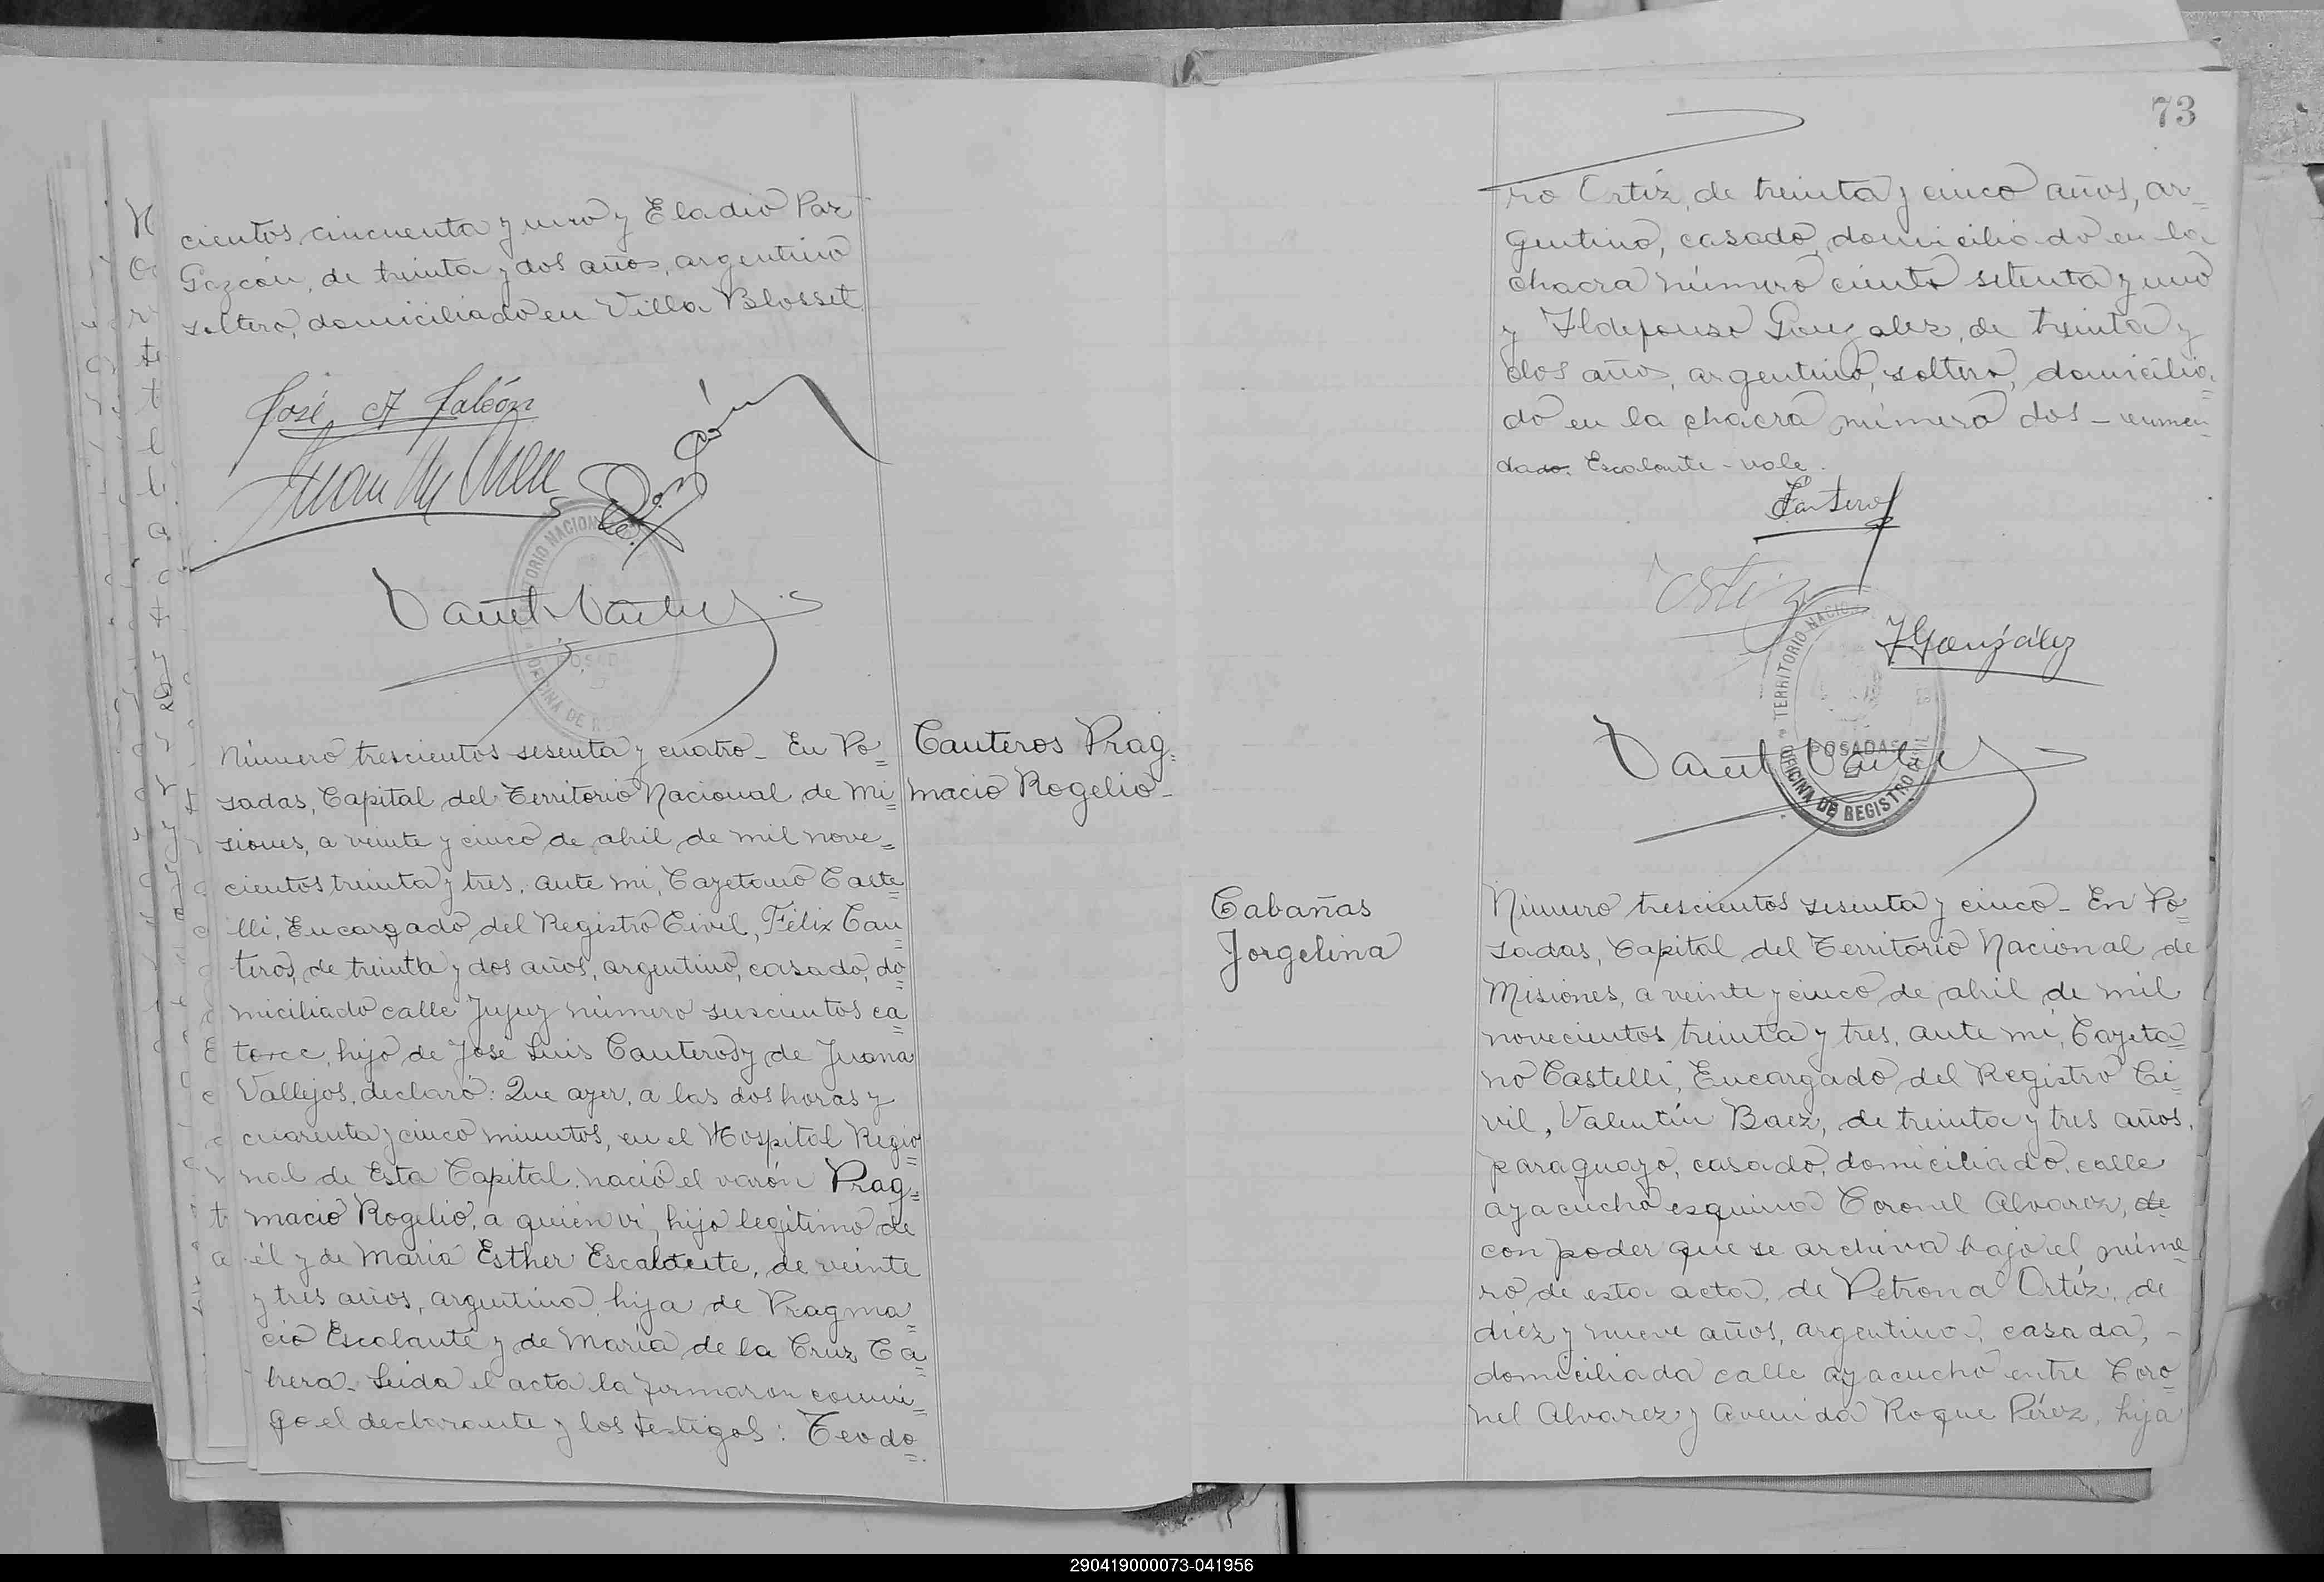 cientos cincuenta y uno y Eladio Paz
Gazcón, de treinta y dos años, argentino
soltero, domiciliado en Villa Blosset
José A Falcón
Número trescientos sesenta y cuatro - En Po=
sadas, Capital del Territorio Nacional de Mi=
siones, a veinte y cinco de abril de mil nove=
cientos treinta y tres, ante mi, Cayetano Caste=
lli, Encargado del Registro Civil, Félix Can=
teros, de treinta y dos años, argentino, casado, do=
miciliado calle Jujuy número seiscientos ca=
torce, hijo de José Luis Canteros y de Juana
Vallejos, declaró: Que ayer, a las dos horas y
cuarenta y cinco minutos, en el Hospital Regio=
nal de Esta Capital, nació el varón Prag=
macio Rogelio, a quien ví, hijo legítimo de
él y de María Esther Escalante, de veinte
y tres años, argentina, hija de Pragma=
cio Escalante y de María de la Cruz Ca=
brera. Leida el acta la firmaron conmi=
go el declarante y los testigos: Teodo=
Canteros Prag=
macio Rogelio -
73
ro Ortíz, de treinta y cinco años, ar=
gentino, casado, domiciliado en la
chacra número ciento setenta y uno
y Ildefonso Gonzalez, de treinta y
dos años, argentino, soltero, domicilia=
do en la chacra número dos - enmen=
dado. Escalante - vale.
Canteros
Ortiz
I González
TERRITORIO NACIONAL
POSADAS
OFICINA DE REGISTRO CIVIL
Cabañas
Jorgelina
Número trescientos sesenta y cinco - En Po=
sadas, Capital del Territorio Nacional de
Misiones, a veinte y cinco de abril de mil
novecientos treinta y tres, ante mi, Cayeta=
no Castelli, Encargado del Registro Ci=
vil, Valentín Baez, de treinta y tres años,
paraguayo, casado, domiciliado, calle
ayacucho esquina Coronel Alvarez, de
con poder que se archiva bajo el núme=
ro de esta acta, de Petrona Ortíz, de
diez y nueve años, argentina, casada, -
domiciliada calle ayacucho entre Coro=
nel Alvarez y Avenida Roque Pérez, hija
290419000073-041956